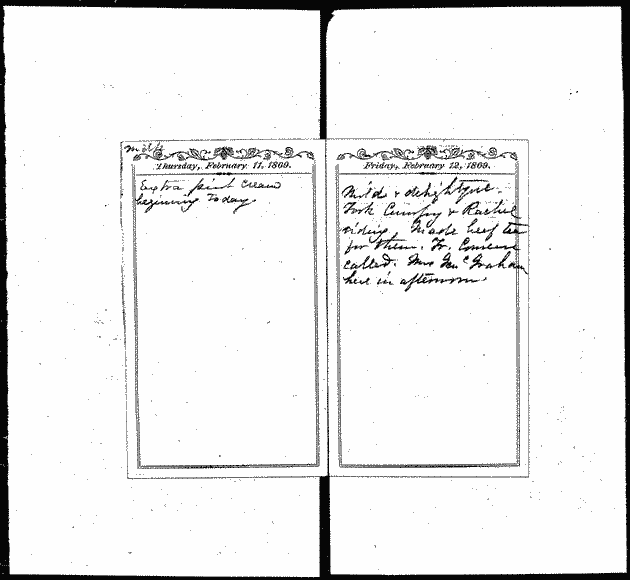 Milk
Thursday, February 11, 1869.
Extra pint Cream
beginning Today
Friday, February 12, 1869.
Mild & delightful.
Took & Rachel
riding. Made beef tea
for them. Fr.
called. Mrs Genl Graham
here in afternoon.